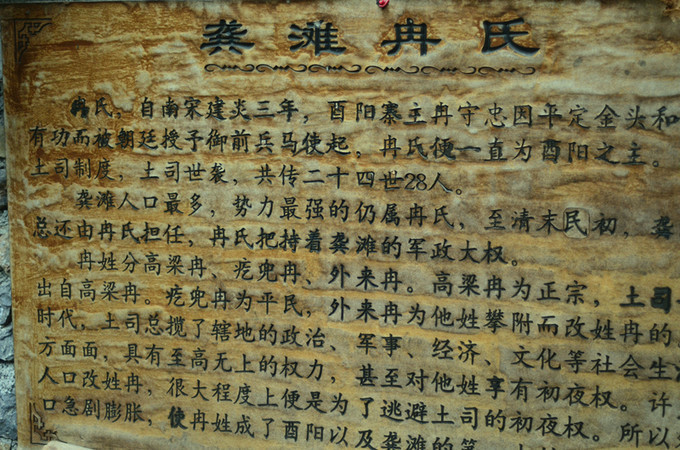 龚滩冉氏
冉氏，自南宋建炎三年，酉阳寨主冉守忠因平定金头和
有功而被朝廷授予御前兵马使起，冉氏便一直为酉阳之主。
土司制度，土司世袭，共传二十四世28人。
龚滩人口最多，势力最强的仍属冉氏，至清末民初，龚
总还由冉氏担任，冉氏把持着龚滩的军政大权。
冉姓分高梁冉、疙兜冉、外来冉。高梁冉为正宗，土司
出自高梁冉。疙兜冉为平民，外来冉为他姓攀附而改姓冉的
时代，土司总揽了辖地的政治、军事、经济、文化等社会生
方面面，具有至高无上的权力，甚至对他姓享有初夜权。许
人口改姓冉，很大程度上便是为了逃避土司的初夜权。所以
口急剧膨胀，使冉姓成了酉阳以及龚滩的第